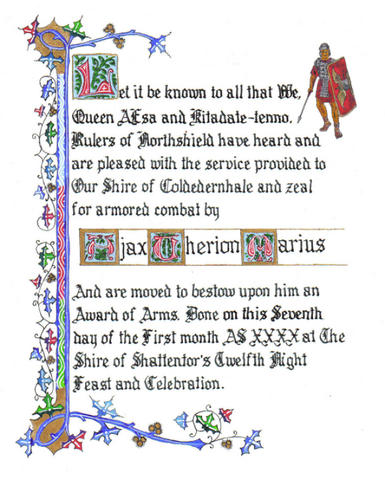 Let it be known to all that We,
Queen AEsa and Kitadate-tenno.
Rulers of Northshield have heard and
are pleased with the service provided to
Our Shire of Coldedernhale and zeal
for armored combat by
Ajax Therion Marius
And are moved to bestow upon him an
Award of Arms. Done on this Seventh
day of the First month AS XXXX at The
Shire of Shattentor's Twelfth Night
Feast and Celebration.